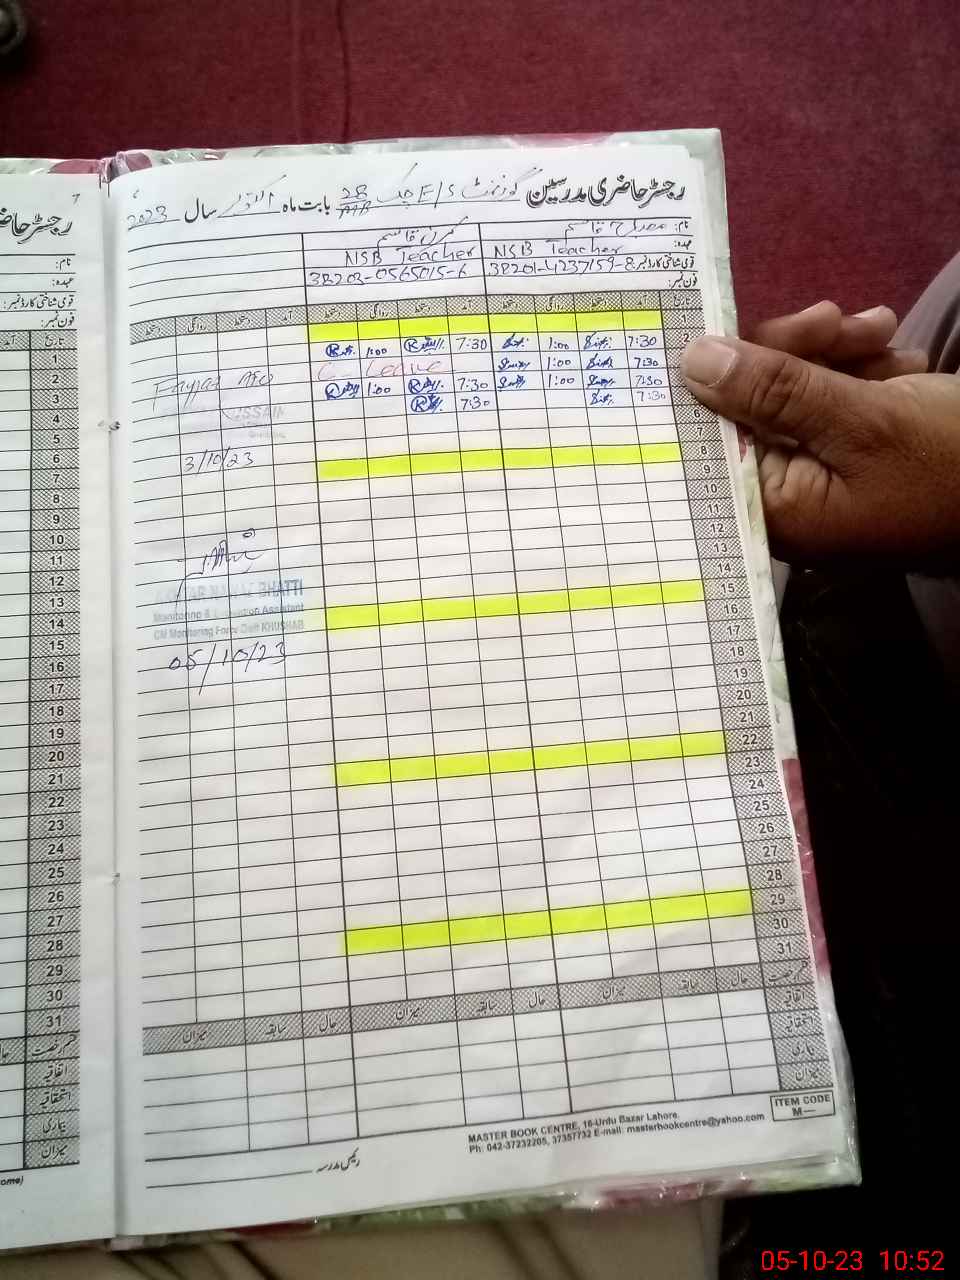 رجسٹر حاضری مدرسین گورنمنٹ E/S چک 28/MB بابت ماہ اکتوبر سال 2023
نام: مصباح قاسم
عہدہ: NSB Teacher NSB Teacher
قومی شناختی کارڈ نمبر: 38201-4237159-8 38203-0565015-6
فون نمبر:
تاریخ آمد دستخط روانگی دستخط آمد دستخط روانگی دستخط آمد دستخط روانگی دستخط
1
2 7:30 1:00 7:30 1:00
7:30 1:00 C-Leave
7:30 1:00 7:30 1:00
7:30 7:30
6
7
8
9
10
11
12
13
14
15
16
17
18
19
20
21
22
23
24
25
26
27
28
29
30
31
3/10/23
BHATTI
Monitoring & Assistant
CM Monitoring Force Distt KHUSHAB
05/10/23
قسم رخصت حال سابقہ میزان حال سابقہ میزان حال سابقہ میزان
اتفاقیہ
استحقاقیہ
بیماری
میزان
رئیس مدرسہ
MASTER BOOK CENTRE, 16-Urdu Bazar Lahore.
Ph: 042-37232205, 37357732 E-mail: masterbookcentre@yahoo.com
ITEM CODE
M—
رجسٹر حاضر
نام:
عہدہ:
قومی شناختی کارڈ نمبر:
فون نمبر:
تاریخ آمد
1
2
3
4
5
6
7
8
9
10
11
12
13
14
15
16
17
18
19
20
21
22
23
24
25
26
27
28
29
30
31
قسم رخصت حال
اتفاقیہ
استحقاقیہ
بیماری
میزان
05-10-23 10:52